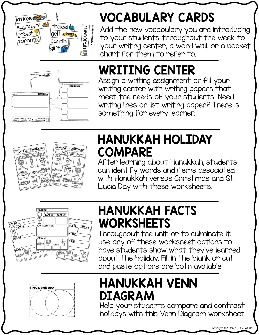 VOCABULARY CARDS
Add the new vocabulary you are introducing
to your students throughout the week to
your writing center, a word wall or a pocket
chart for them to refer to.
WRITING CENTER
Assign a writing assignment or fill your
writing center with writing papers that
meet the needs of your students. Need
writing lines or list writing paper? There is
something for every learner.
HANUKKAH HOLIDAY
COMPARE
After learning about Hanukkah, students
can identify words and items associated
with Hanukkah versus Christmas and St.
Lucia Day with these worksheets.
HANUKKAH FACTS
WORKSHEETS
Throughout the unit or to culminate it,
use any of these worksheet options to
have students show what they've learned
about the holiday. Fill in the blank or cut
and paste options are both available.
HANUKKAH VENN
DIAGRAM
Help your students compare and contrast
holidays with this Venn Diagram worksheet.